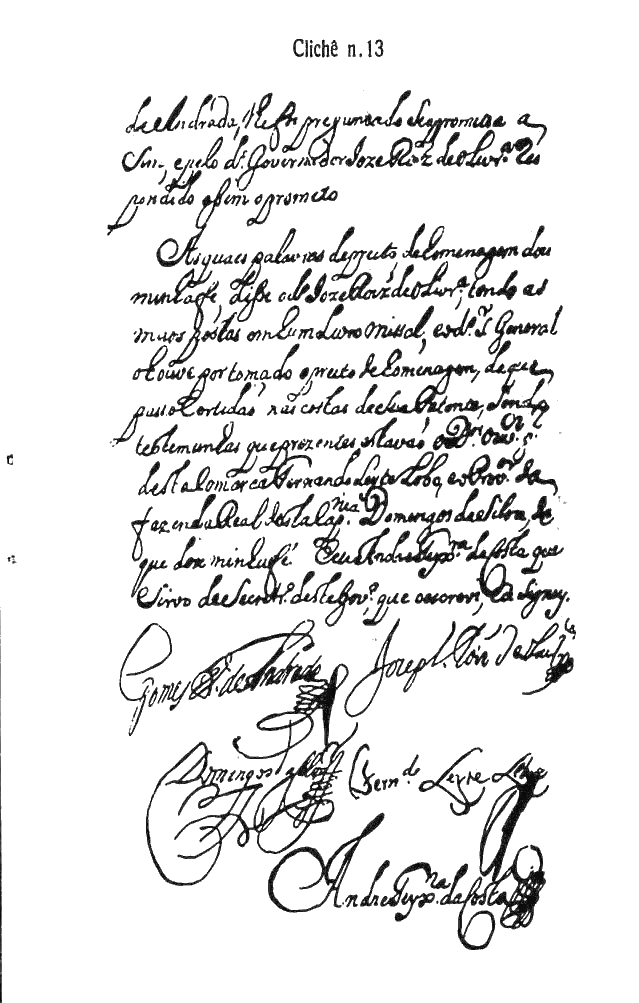 Clichê n.13
de Andrada, lhe foi preguntado se a promettia a
Sim, e pelo d.º Governador Joze Roiz de Olivr.ª res
pondido assim o prometo
As quaes palavras de preito, de Comenagem dou
minha fé, disse o d.º Joze Roiz de Olivr.ª, tendo as
mãos postas em hum Livro Missal, e o d.º S.r General
o houve por tomado o preito de homenagem, de que
passo Certidão nas costas de sua Patente, sendo
testemunhas que prezentes estavão o D.or Ouv.or g.
desta Comarca Fernando Leyte Lobo, e o Prov.or da
fazenda Real desta Cap.nia Domingos da Silva, de
que dou minha fé Eu Andre Teyx.ra da Costa que
Sirvo de Secretr.º deste Gov.º, que o escrevi, e a signey.
Gomes Fr.e de Andrada
Joseph Roiz de Oliur.ª
Domingos da Silva
Fern.do Leyte Lobo
Andre Teyx.ra da Costa